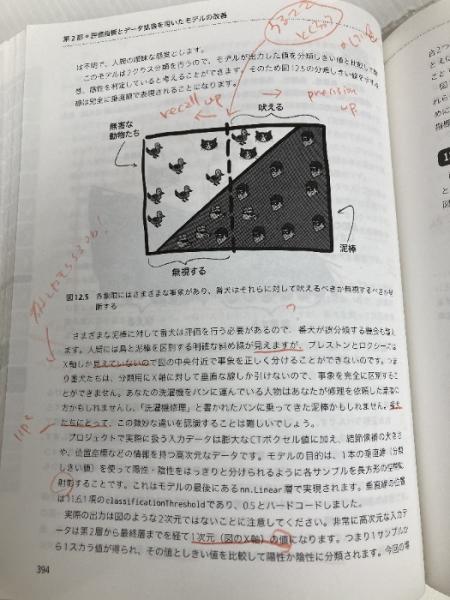 第2部 • 評価指標とデータ拡張を用いたモデルの改善
は不明で、人間の曖昧な感覚とします。
このモデルは2クラス分類を行うので、モデルが出力した値を分類しきい値と比較して陽
性、陰性を判定していると考えることができます。そのため図12.5の分類しきい値を示す点
線は完全に垂直線で表現されることになります。
recall up
precision up
吠える
無害な
動物たち
無視する
泥棒
図12.5 各象限にはさまざまな事象があり、番犬はそれらに対して吠えるべきか無視するべきかを判
断する
さまざまな泥棒に対して番犬は評価を行う必要があるので、番犬が誤分類する機会も増え
ます。人間には鳥と泥棒を区別する明確な斜め線が見えますが、プレストンとロクシーズは
X軸しか見えていないので図の中央付近で事象を正しく分けることができないのです。つま
り番犬たちは、分類用にX軸に対して垂直な線しか引けないので、事象を完全に区別するこ
とができません。あなたの洗濯機をバンに運んでいる人物はあなたが修理を依頼した業者の
方かもしれませんし、「洗濯機修理」と書かれたバンに乗ってきた泥棒かもしれません。番犬
たちにとって、この微妙な違いを認識することは難しいでしょう。
プロジェクトで実際に扱う入力データは膨大なCTボクセル値に加え、結節候補の大きさ
や、位置座標などの情報を持つ高次元なデータです。モデルの目的は、1本の垂直線（分類
しきい値）を使って陽性・陰性をはっきりと分けられるように各サンプルを長方形の空間に
射影することです。これはモデルの最後にあるnn.Linear層で実現されます。垂直線の位置
は11.6.1項のclassificationThresholdであり、0.5とハードコードしました。
実際の出力は図のような2次元ではないことに注意してください。非常に高次元な入力デ
ータは第2層から最終層までを経て1次元（図のX軸）の値になります。つまり1サンプルか
ら1スカラ値が得られ、その値としきい値を比較して陽性か陰性に分類されます。今回の場
394